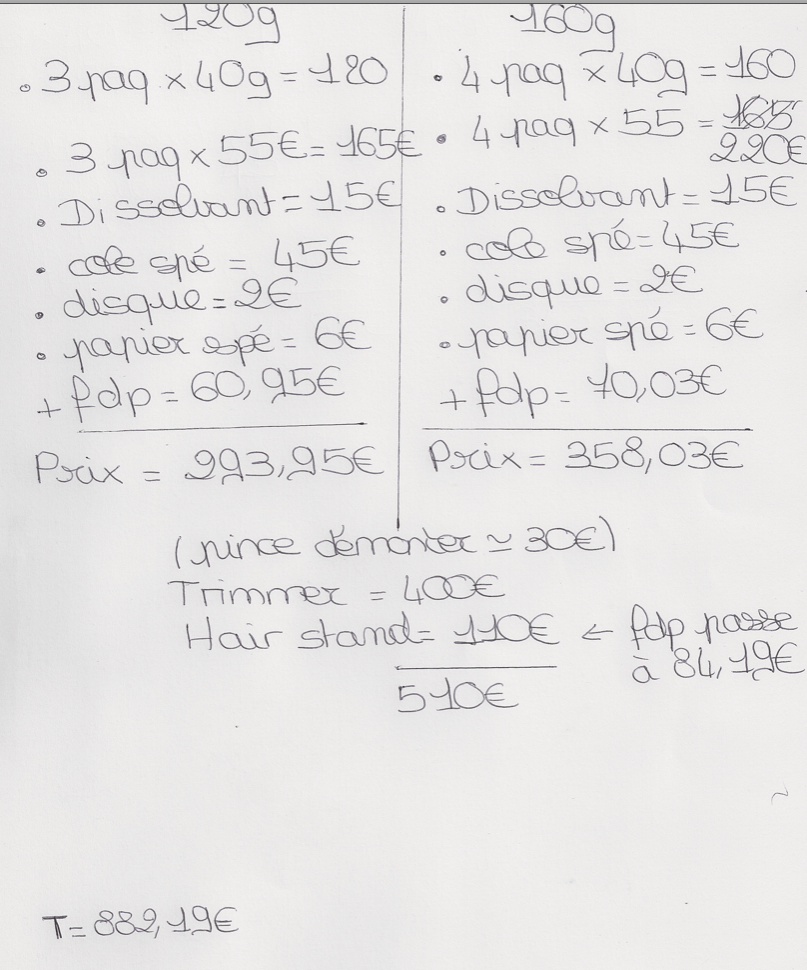 120g
. 3 paq x 40g = 120
. 3 paq x 55€ = 165€
. Dissolvant = 15€
. cole spé = 45€
. disque = 2€
. papier spé = 6€
+ fdp = 60,95€
Prix = 293,95€
160g
. 4 paq x 40g = 160
. 4 paq x 55 = 165
220€
. Dissolvant = 15€
. cole spé = 45€
. disque = 2€
. papier spé = 6€
+ fdp = 70,03€
Prix = 358,03€
(pince démonter ≃ 30€)
Trimmer = 400€
Hair stand = 110€ ← fdp passe
à 84,19€
510€
T = 882,19€